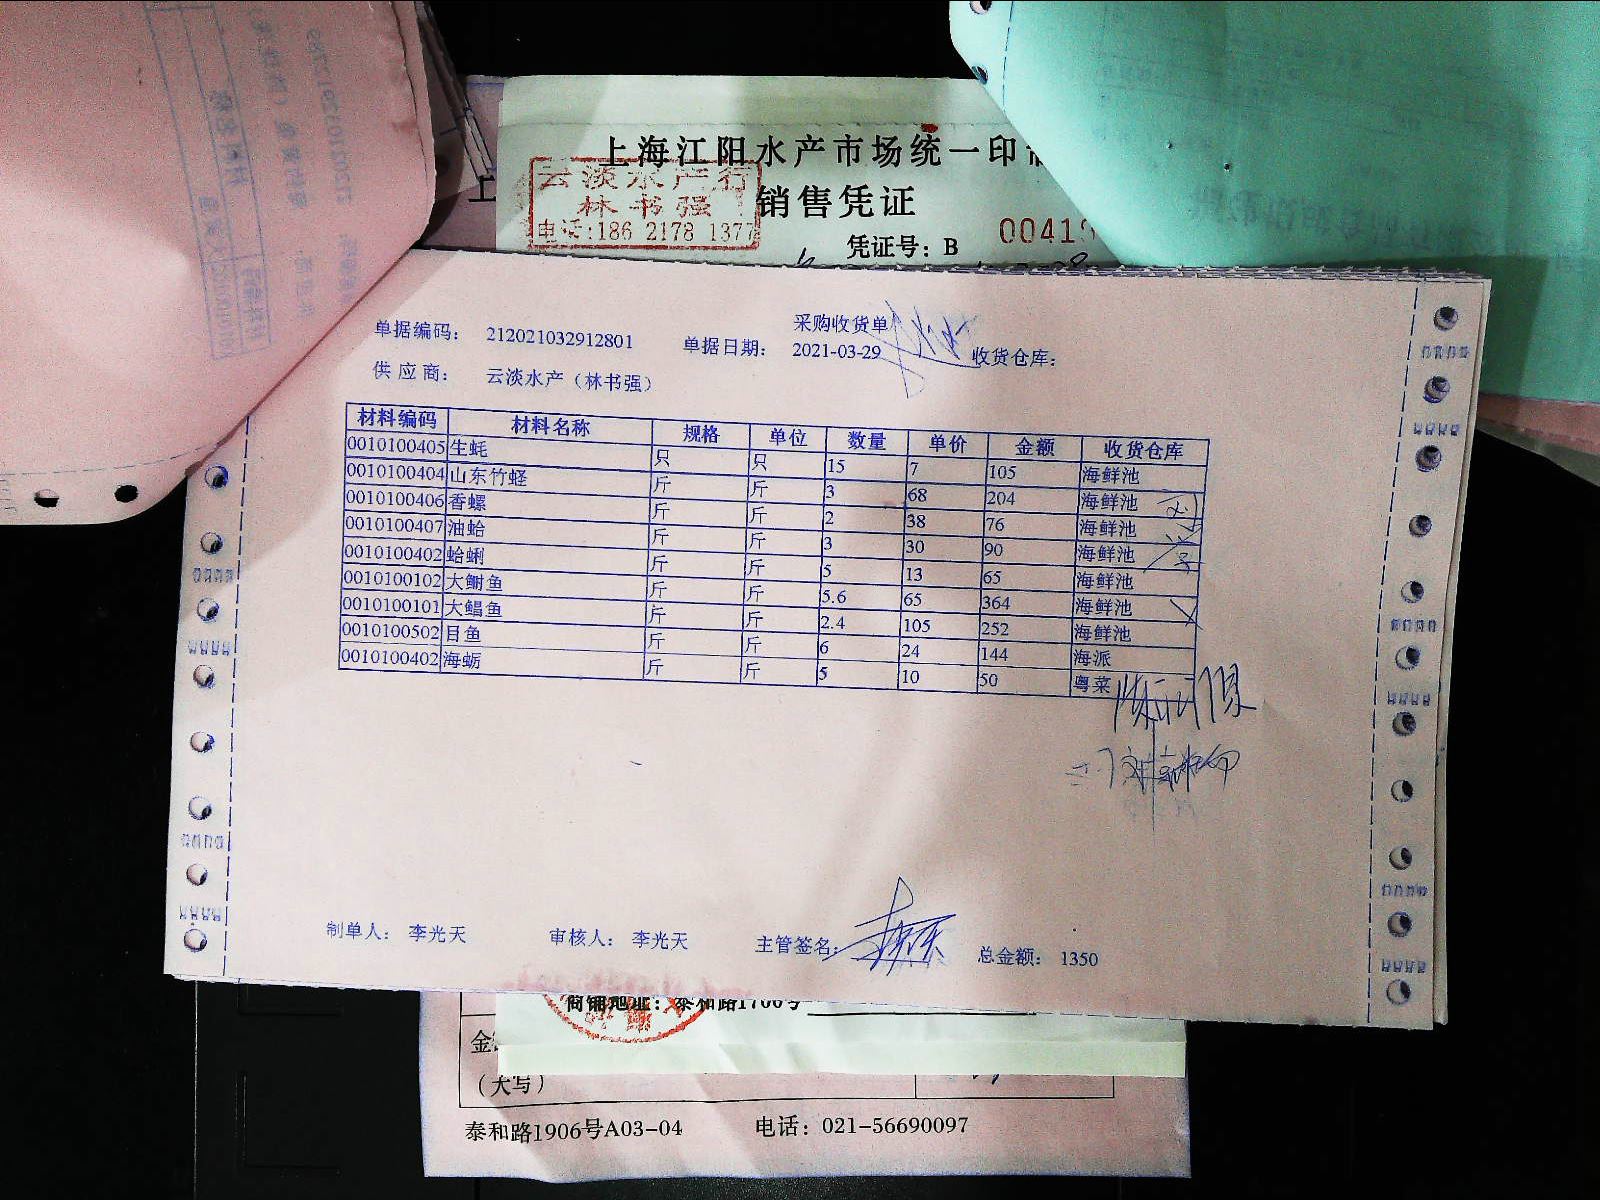 上海江阳水产市场统一印
云淡水产行
林书强
电话:186 2178 1377
销售凭证
凭证号：B 00419
采购收货单
单据编码： 212021032912801 单据日期： 2021-03-29 收货仓库：
供应商： 云淡水产（林书强）
材料编码 材料名称 规格 单位 数量 单价 金额 收货仓库
0010100405 生蚝 只 只 15 7 105 海鲜池
0010100404 山东竹蛏 斤 斤 3 68 204 海鲜池
0010100406 香螺 斤 斤 2 38 76 海鲜池
0010100407 油蛤 斤 斤 3 30 90 海鲜池
0010100402 蛤蜊 斤 斤 5 13 65 海鲜池
0010100102 大鮒鱼 斤 斤 5.6 65 364 海鲜池
0010100101 大鲳鱼 斤 斤 2.4 105 252 海鲜池
0010100502 目鱼 斤 斤 6 24 144 海派
0010100402 海蛎 斤 斤 5 10 50 粤菜
制单人： 李光天 审核人： 李光天 主管签名： 总金额： 1350
商铺地址：泰和路1700号
金
（大写）
泰和路1906号A03-04 电话：021-56690097